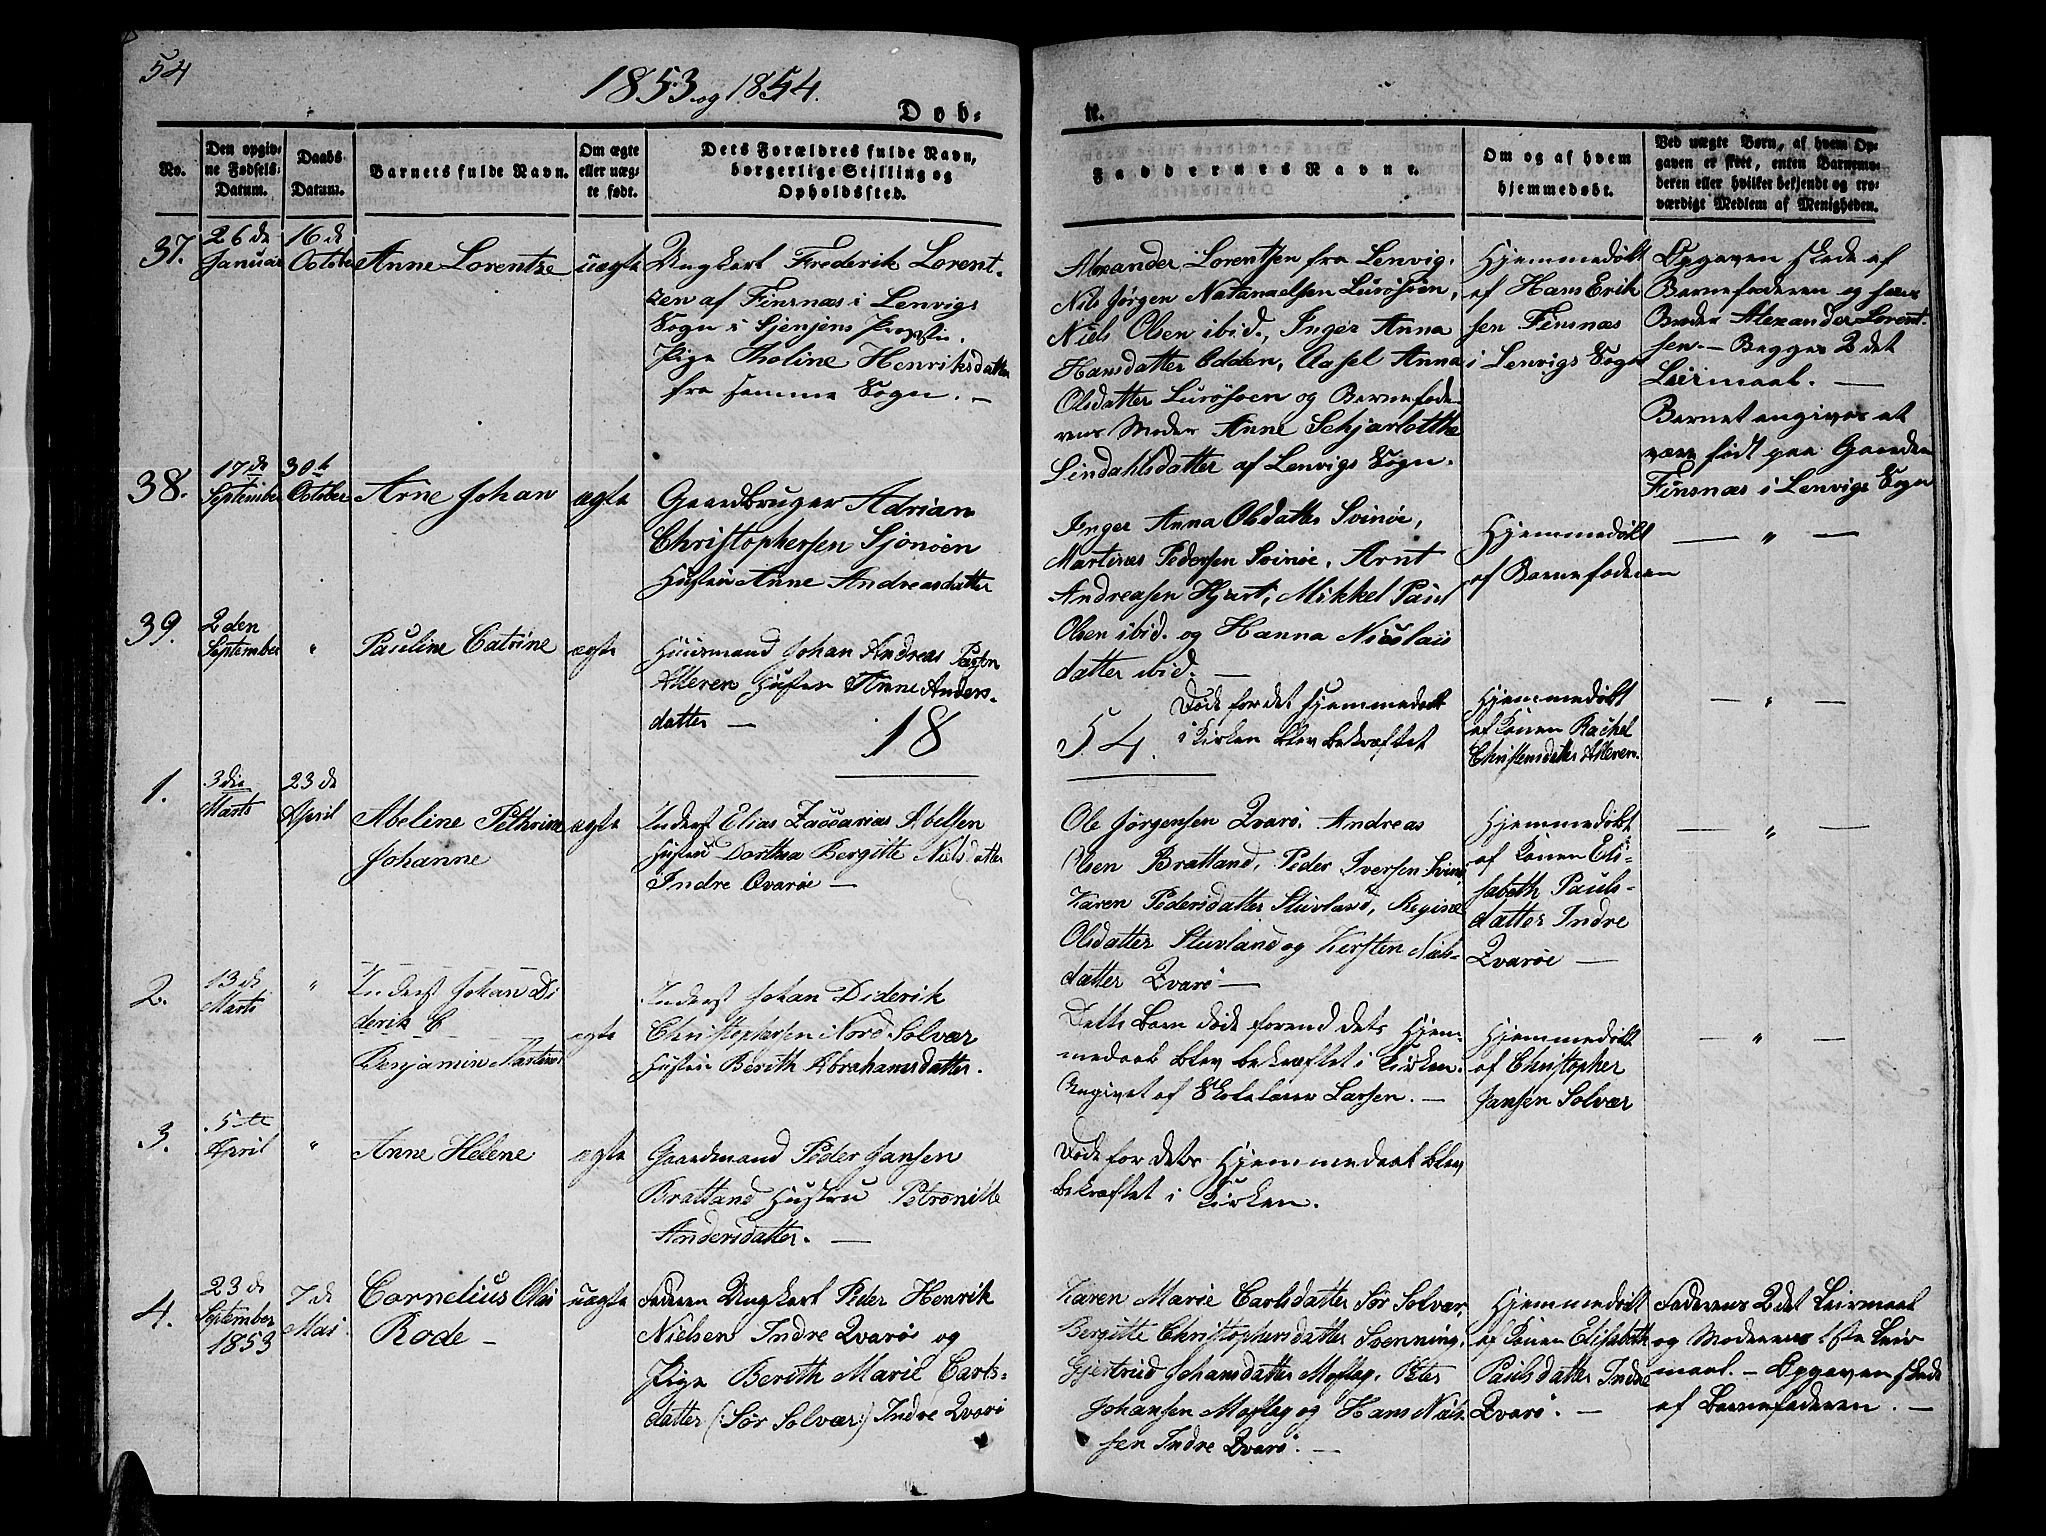 54
1853 og 1854.
Døb-
te.
No.
Den opgiv-
ne Fødsels-
Datum.
Daabs-
Datum.
Barnets fulde Navn.
Om ægte
eller uæg-
te født.
Dets Forældres fulde Navn,
borgerlige Stilling og
Opholdssted.
Faddernes Navne.
Om og af hvem
hjemmedøbt.
Ved uægte Børn, af hvem Op-
gaven er skeet, enten Barnemo-
deren eller hvilket bekjendt og tro-
værdigt Medlem af Menigheden.
37.
26de
Januar
16de
October
Anne Lorentze
uægte
Ungkarl Frederik Lorent-
zen af Finsnæs i Lenvigs
Sogn i Senjens Provsti.
Pige Tholine Henriksdatter
fra samme Sogn. —
Alexander Lorentsen fra Lenvig,
Nils Jørgen Natanaelsen Lurøsöen,
Niels Olsen ibid., Inger Anna
Hansdatter Odden, Aasel Anna
Olsdatter Lurösöen og Barnefade-
rens Moder Anne Schjarlotthe
Lindahlsdatter af Lenvigs Sogn.
Hjemmedøbt
af Hans Erik
sen Finsnæs
i Lenvigs Sogn
Opgaven skede af
Barnefaderen og hans
Broder Alexander Lorent-
sen. — Begges 2det
Leiermaal. —
Barnet angives at
være født paa Gaarden
Finsnæs i Lenvigs Sogn
38.
17de
September
30te
October
Arne Johan
ægte
Gaardbruger Adrian
Christophersen Sjonöen
Hustru Anne Andreasdatter
Inger Anna Olsdatter Svinöe,
Martines Pedersen Svinöe, Arnt
Andreasen Hjart, Mikkel Paul
Olsen ibid. og Hanna Nicolais
datter ibid. —
Hjemmedøbt
af Barnefaderen
— " —
39.
2den
September
"
Pauline Catrine
ægte
Huusmand Johan Andreas
Alteren Hustru Anne Anders-
datter —
Døde før det hjemmedøbt
i Kirken blev bekræftet
Hjemmedøbt
af Konen Rachel
Christensdatter Alteren.
— " —
18
54.
1.
3die
Marts
23de
April
Abeline Pethrine
Johanne
ægte
Inderst Elias Zaccarias Abelsen
Hustru Dorthea Bergitte Nielsdatter
Indre Qvaröe —
Ole Jørgensen Qvarö, Andreas
Olsen Brattland, Peder Iversen Svinö,
Karen Pedersdatter Stuvland, Regine
Olsdatter Stuvland og Kersten Niels-
datter Qvarö —
Hjemmedøbt
af Konen Eli-
sabeth Pauls-
datter Indre
Qvaröe —
— " —
2.
13de
Marts
"
Inderst Johan Di
derik C
Benjamin Martin
ægte
Inderst Johan Diderik
Christophersen i Nord-Solvær
Hustru Berith Abrahamsdatter.
Dette Barn døde forend dets Hjem-
medaab blev bekræftet i Kirken.
Angivet af Skolelærer Larsen. —
Hjemmedøbt
af Christopher
Jansen Solvær
— " —
3.
5te
April
"
Anne Helene
ægte
Gaardmand Peder Jansen
Brattland Hustru Petronille
Andersdatter. —
Døde før dets Hjemmedaab blev
bekræftet i Kirken.
4.
23de
September
1853
7de
Mai
Cornelius Olai
Rode —
uægte
Faderen Ungkarl Peder Henrik
Nielsen Indre Qvaröe og
Pige Berith Marie Carls-
datter (Sör Solvær) Indre Qvarö
Karen Marie Carlsdatter Sör Solvær,
Bergitte Christophersdatter Svenning,
Gjertrud Johansdatter Moflag, Peter
Johansen Moflag og Hans Niel-
sen Indre Qvarö. —
Hjemmedøbt
af Konen Elisabeth
Paulsdatter Indre
Qvarö. —
Faderens 2det Leiermaal
og Moderens 1ste Leier
maal. — Opgaven skede
af Barnefaderen. —